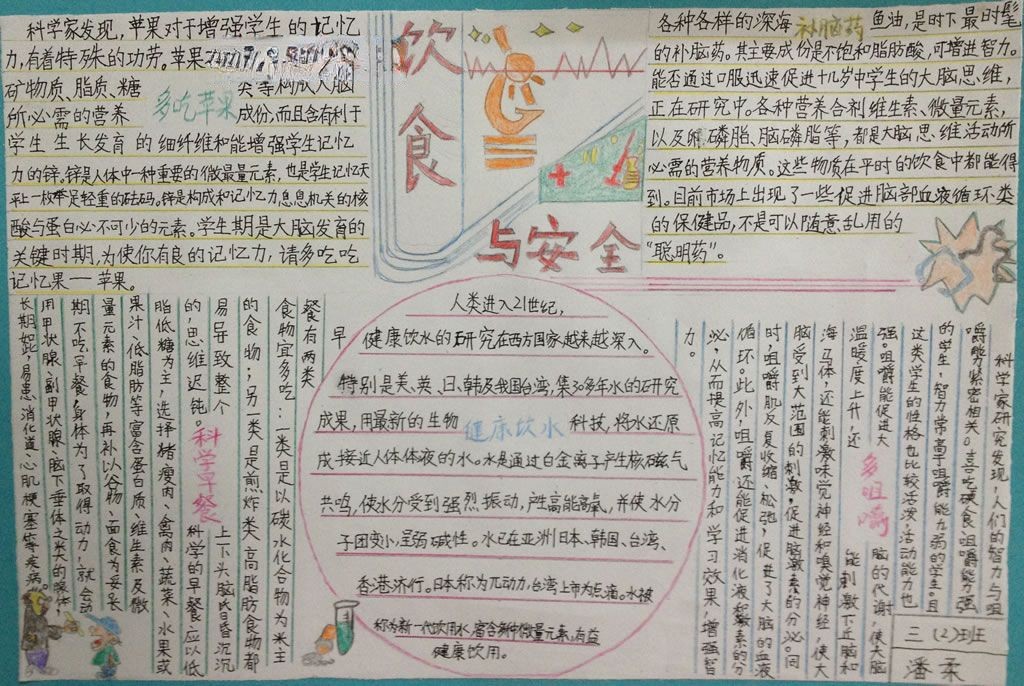 科学家发现,苹果对于增强学生的记忆
力,有着特殊的功劳。苹果
矿物质、脂质、糖 类等构成大脑
所必需的营养 成份,而且含有利于
多吃苹果
学生生长发育的细纤维和能增强学生记忆
力的锌。锌是人体中一种重要的微量元素,也是学生记忆天
平上一枚举足轻重的砝码。锌是构成和记忆力息息机关的核
酸与蛋白必不可少的元素。学生期是大脑发育的
关键时期,为使你有良的记忆力,请多吃吃
记忆果——苹果。
饮食
与安全
各种各样的深海 补脑药 鱼油,是时下最时髦
的补脑药。其主要成份是不饱和脂肪酸,可增进智力。
能否通过口服迅速促进十几岁中学生的大脑思维,
正在研究中。各种营养合剂维生素、微量元素,
以及卵磷脂、脑磷脂等,都是大脑思维活动所
必需的营养物质。这些物质在平时的饮食中都能得
到。目前市场上出现了一些促进脑部血液循环类
的保健品,不是可以随意乱用的
“聪明药”。
早
餐有两类
食物宜多吃:一类是以碳水化合物为米主
的食物;另一类是煎炸类、高脂肪食物都
易导致整个 上下头脑氏昏沉沉
的,思维迟钝。 科学的早餐应以低
科学早餐
脂低糖为主,选择猪瘦肉、禽肉、蔬菜、水果或
果汁、低脂肪等等富含蛋白质、维生素及微
量元素的食物,再补以谷物、面食为妥。长
期不吃早餐,身体为了取得动力,就会动
用甲状腺、副甲状腺、脑下垂体之类的腺体,
长期如此,易患消化道、心肌梗塞等疾病。
人类进入21世纪,
健康饮水的研究在西方国家越来越深入。
特别是美、英、日、韩及我国台湾,集30多年水的研究
成果,用最新的生物 健康饮水 科技,将水还原
成接近人体体液的水。水是通过白金离子产生核磁气
共鸣,使水分受到强烈振动,产生高能高氧,并使水分
子团变小,呈弱碱性。水已在亚洲日本、韩国、台湾、
香港济行。日本称为π动力,台湾上市为后滴。水被
称为新一代饮用水,富含新中微量元素,有益
健康饮用。
科学家研究发现,人们的智力与咀
嚼能力紧密相关。喜吃硬食、咀嚼能力强
的学生,智力常高于咀嚼能力弱的学生。且
这类学生的性格也比较活泼,活动能力也
强。咀嚼能促进大 脑的代谢,使大脑
温暖度上升,还 能刺激下近脑和
多咀嚼
海马体,还能刺激味觉神经和嗅觉神经,使大
脑受到大范围的刺激,促进脑激素的分泌。同
时,咀嚼肌反复收缩、松弛,促进了大脑的血液
循环。此外,咀嚼还能促进消化液和激素的分
泌,从而提高记忆能力和学习效果,增强智
力。
三(2)班
潘柔